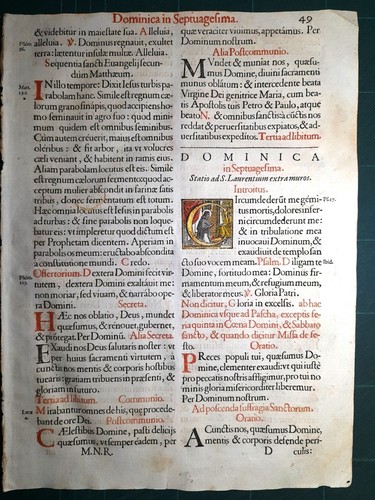 Dominica in Septuagesima.
49
& videbitur in maiestate sua. Alleluia,
alleluia. ℣. Dominus regnauit, exultet
terra: lætentur insulæ multæ. Alleluia.
Sequentia sancti Euangelij secun-
dum Matthæum.
IN illo tempore: Dixit Iesus turbis pa-
rabolam hanc. Simile est regnum cæ-
lorum grano sinapis, quod accipiens ho-
mo seminauit in agro suo: quod mini-
mum quidem est omnibus seminibus.
Cùm autem creuerit, maius est omnibus
oleribus: & fit arbor, ita vt volucres
cæli veniant, & habitent in ramis eius.
Aliam parabolam locutus est eis. Simile
est regnum cælorum fermento: quod ac-
ceptum mulier abscondit in farinæ satis
tribus, donec fermentatum est totum.
Hæc omnia locutus est Iesus in parabolis
ad turbas: & sine parabolis non loque-
batur eis: vt impleretur quod dictum est
per Prophetam dicentem. Aperiam in
parabolis os meum: eructabo abscondita
a constitutione mundi. Credo.
Offertorium. Dextera Domini fecit vir-
tutem, dextera Domini exaltauit me:
non moriar, sed viuam, & narrabo ope-
ra Domini. Secreta.
HÆc nos oblatio, Deus, mundet
quæsumus, & renouet, gubernet,
& protegat. Per Dominū. Alia Secreta.
EXaudi nos Deus salutaris noster: vt
per huius sacramenti virtutem, à
cunctis nos mentis & corporis hostibus
tuearis: gratiam tribuens in præsenti, &
gloriam in futuro.
Tertia ad libitum. Communio.
Mirabantur omnes de his, quę procede-
bant de ore Dei. Postcommunio.
CÆlestibus Domine, pasti delicijs
quæsumus, vt semper eadem, per
M.N.R.
quæ veraciter viuimus, appetámus. Per
Dominum nostrum.
Alia Postcommunio.
MVndet & muniat nos, quæsu-
mus Domine, diuini sacramenti
munus oblatum: & intercedente beata
Virgine Dei genitrice Maria, cum bea-
tis Apostolis tuis Petro & Paulo, atque
beato N. & omnibus sanctis: à cūctis nos
reddat & peruersitatibus expiatos, & ad-
uersitatibus expeditos. Tertia ad libitum.
DOMINICA
in Septuagesima.
Statio ad S. Laurentium extra muros.
Introitus.
Circumdederūt me gémi-
tus mortis, dolores infer-
ni circumdederunt me:
& in tribulatione mea
inuocaui Dominum, &
exaudiuit de templo san-
cto suo vocem meam. Psalm. Diligam te
Domine, fortitudo mea: Dominus fir-
mamentum meum, & refugium meum,
& liberator meus. ℣. Gloria Patri.
Non dicitur, Gloria in excelsis. ab hac
Dominica vsque ad Pascha, exceptis fe-
ria quinta in Cœna Domini, & Sabbato
sancto, & quando dicitur Missa de fe-
sto. Oratio.
PReces populi tui, quæsumus Do-
mine, clementer exaudi: vt qui iustè
pro peccatis nostris affligimur, pro tui no-
minis gloria misericorditer liberemur.
Per Dominum nostrum.
Ad poscenda suffragia Sanctorum.
Oratio.
A Cunctis nos, quæsumus Domine,
mentis & corporis defende peri-
D culis: